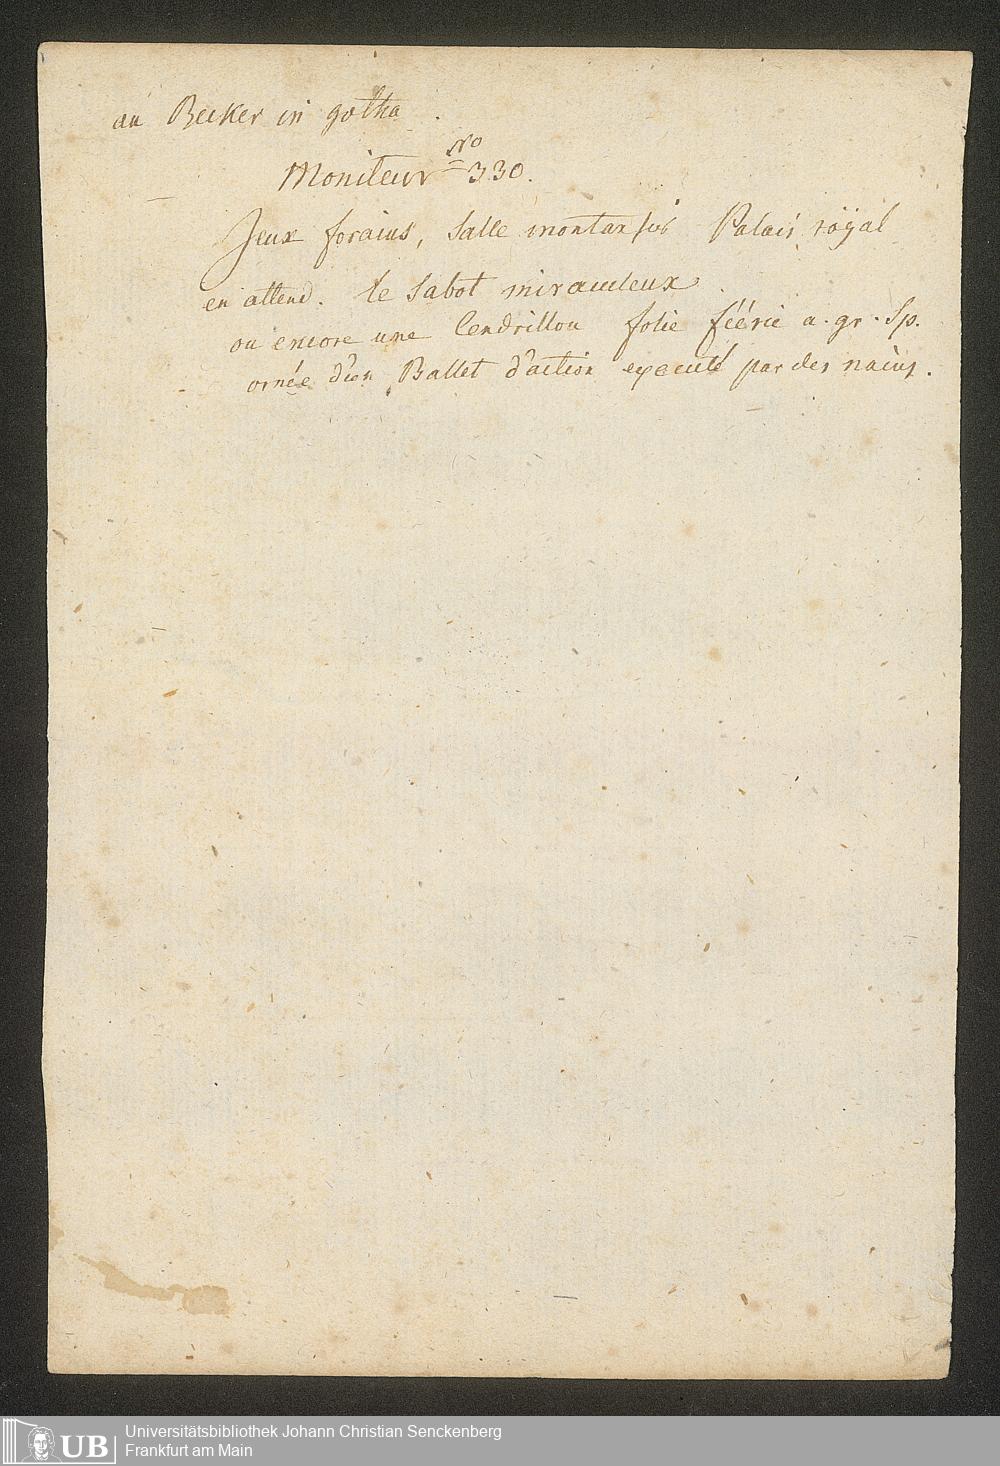 an Becker in gotha.
Moniteur No 330.
Jeux forains, Salle montansier Palais royal
en attend. le Sabot miraculeux.
ou encore une Cendrillon folie féérie a. gr. Sp.
ornée d'un Ballet d'action executé par des nains.
UB Universitätsbibliothek Johann Christian Senckenberg
Frankfurt am Main